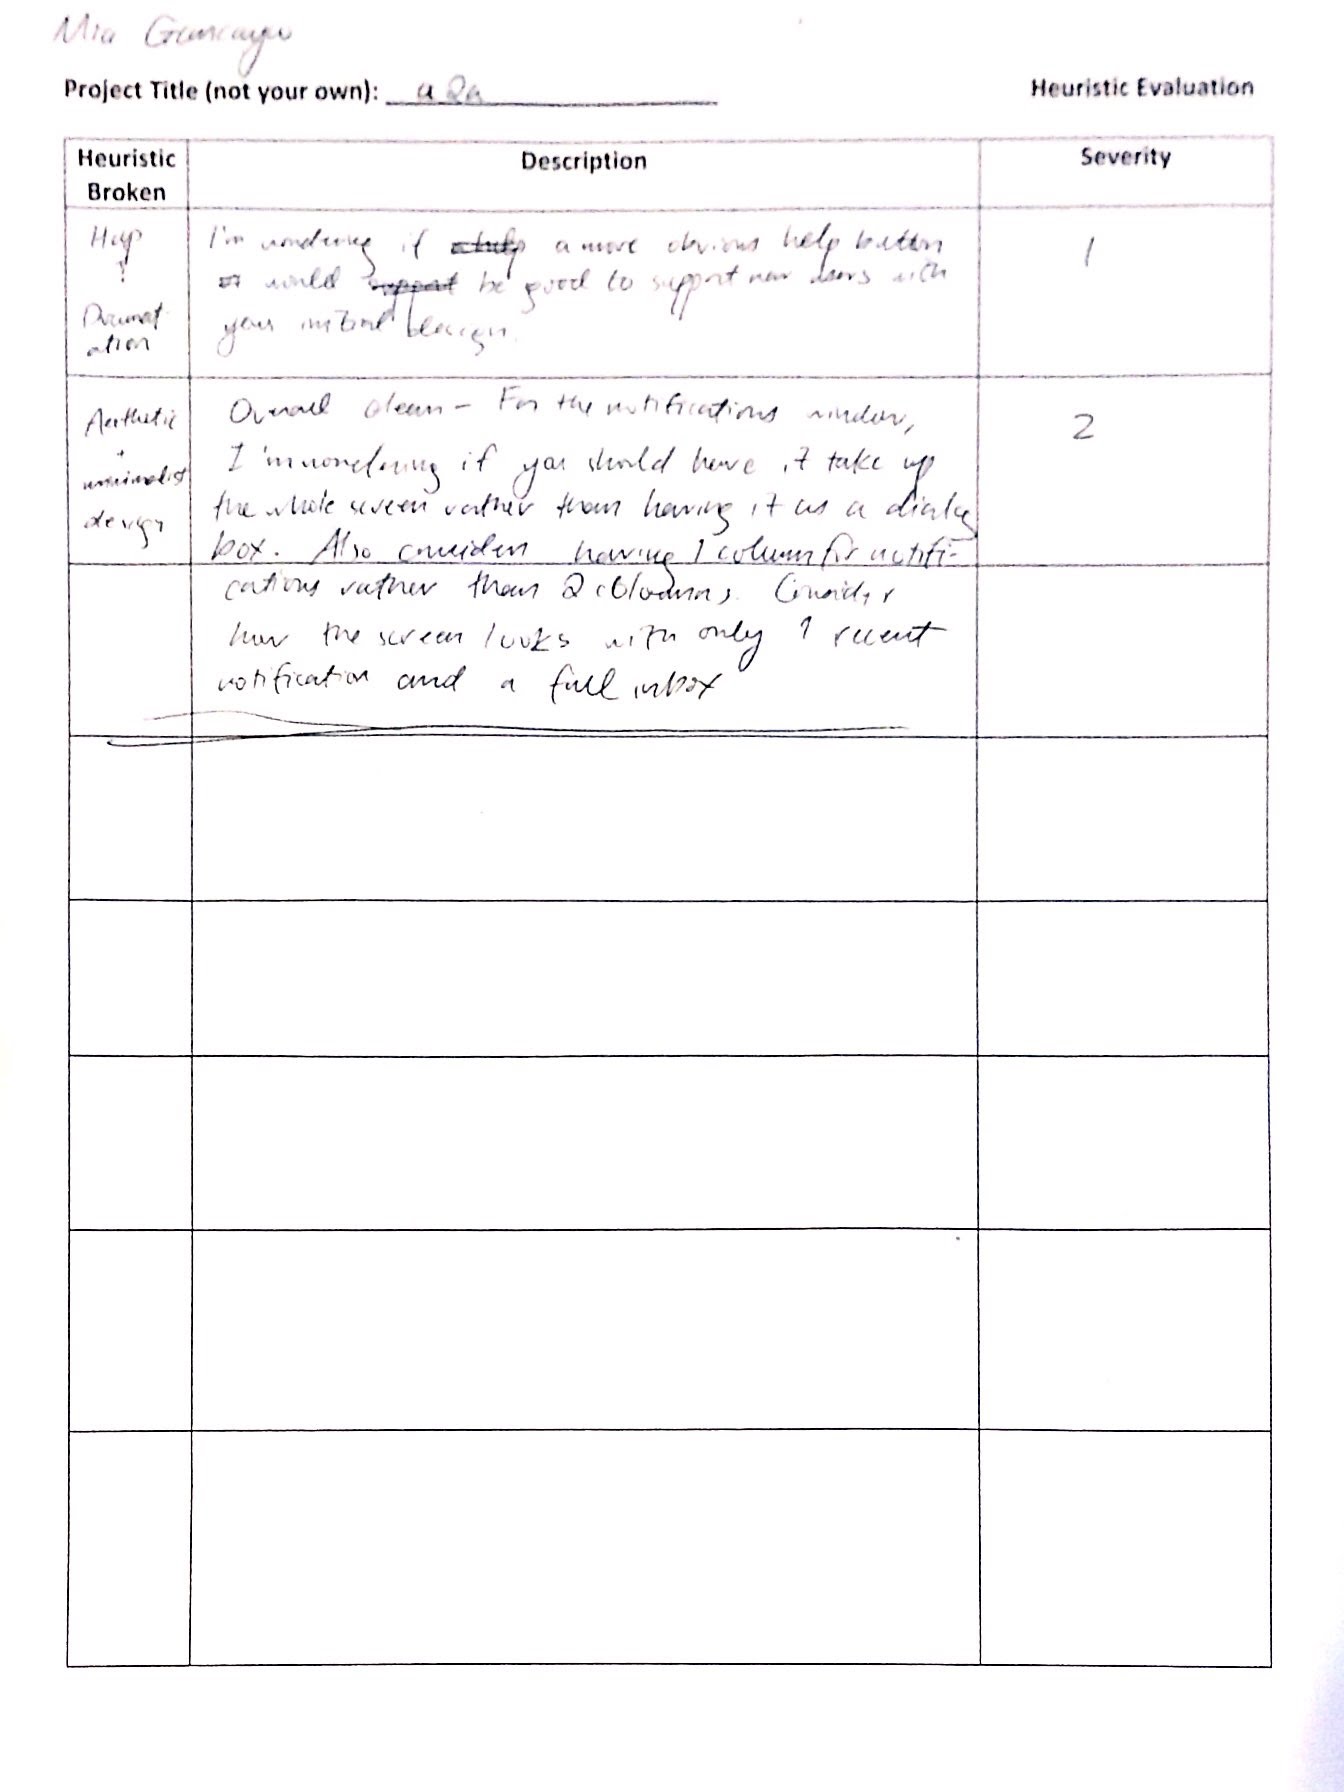 Mia
Project Title (not your own): a2a
Heuristic Evaluation
Heuristic Broken
Description
Severity
Help
?
Documentation
I'm wondering if a more obvious help button
would be good to support new users with
your initial design.
1
Aesthetic
+
minimalist
design
Overall clean - For the notifications window,
I'm wondering if you should have it take up
the whole screen rather than having it as a dialog
box. Also consider having 1 column for notifi-
cations rather than 2 columns. Consider
how the screen looks with only 1 recent
notification and a full inbox
2